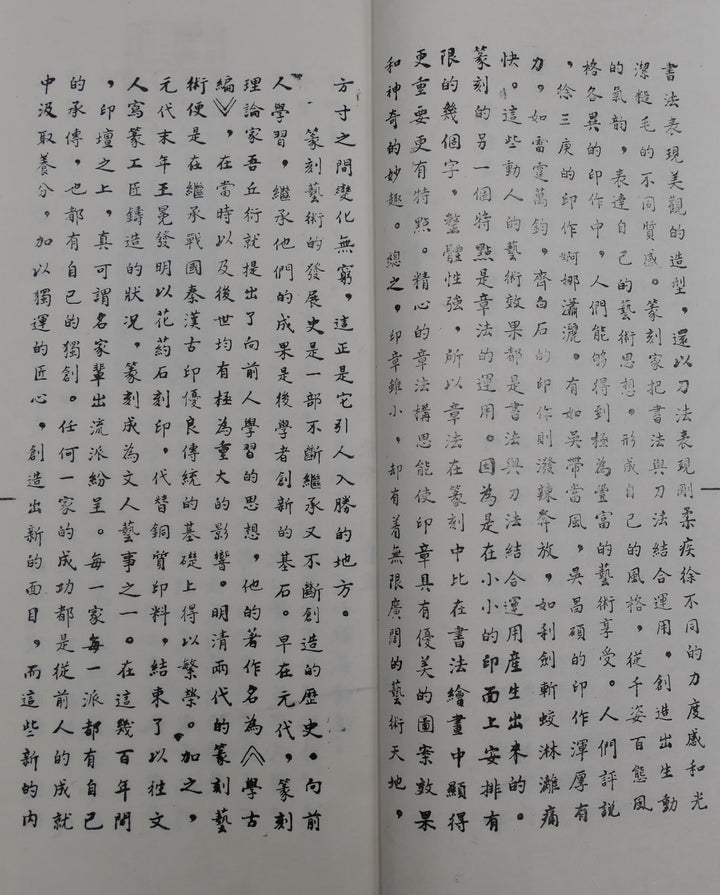 書法表現美觀的造型，還以刀法表現剛柔疾徐不同的力度感和光
潔糙毛的不同質感。篆刻家把書法與刀法結合運用，創造出生動
的氣韵，表達自己的藝術思想。形成自己的風格，從千姿百態風
格各異的印作中，人們能够得到極為豐富的藝術享受。人們評說
，徐三庚的印作婀娜瀟灑。有如吳帶當風，吳昌碩的印作渾厚有
力，如雷霆萬鈞，齊白石的印作則潑辣奔放，如利劍斬蛟淋漓痛
快。這些動人的藝術效果都是書法與刀法結合運用産生出來的。
篆刻的另一個特點是章法的運用。因為是在小小的印面上安排有
限的幾個字，整體性強，所以章法在篆刻中比在書法繪畫中顯得
更重要更有特點。精心的章法構思能使印章具有優美的圖案效果
和神奇的妙趣。總之，印章雖小，却有着無限廣闊的藝術天地，
方寸之間變化無窮，這正是它引人入勝的地方。
篆刻藝術的發展史是一部不斷繼承又不斷創造的歷史。向前
人學習，繼承他們的成果是後學者創新的基石。早在元代，篆刻
理論家吾丘衍就提出了向前人學習的思想，他的著作名為《學古
編》，在當時以及後世均有極為重大的影響。明清兩代的篆刻藝
術便是在繼承戰國秦漢古印優良傳統的基礎上得以繁榮。加之，
元代末年王冕發明以花葯石刻印，代替銅質印料，結束了以往文
人寫篆工匠鑄造的狀況，篆刻成為文人藝事之一。在這幾百年間
，印壇之上，真可謂名家輩出流派紛呈。每一家每一派都有自己
的承傳，也都有自己的獨創。任何一家的成功都是從前人的成就
中汲取養分，加以獨運的匠心，創造出新的面目，而這些新的内